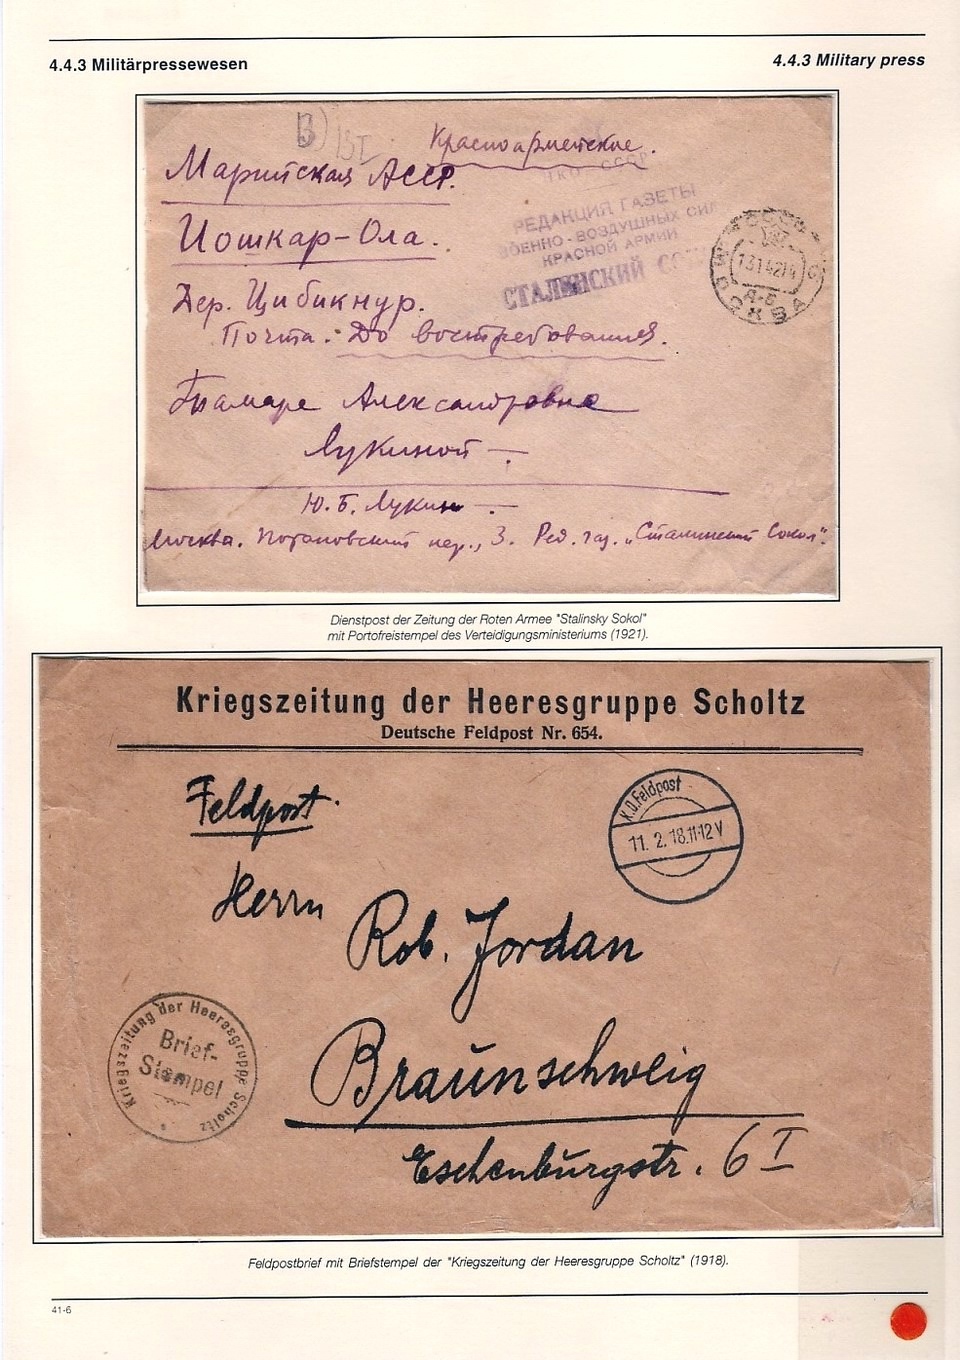 4.4.3 Militärpressewesen
4.4.3 Military press
Красноармейское.
Марийская АССР.
Йошкар-Ола.
Дер. Цибикнур.
Почта. До востребования.
Тамаре Александровне
Лукиной
Ю. Б. Лукин
Москва. Потаповский пер., 3. Ред. газ. „Сталинский Сокол".
НКО СССР
РЕДАКЦИЯ ГАЗЕТЫ
ВОЕННО-ВОЗДУШНЫХ СИЛ
КРАСНОЙ АРМИИ
СТАЛИНСКИЙ
СССР
МОСКВА
Dienstpost der Zeitung der Roten Armee "Stalinsky Sokol"
mit Portofreistempel des Verteidigungsministeriums (1921).
Kriegszeitung der Heeresgruppe Scholtz
Deutsche Feldpost Nr. 654.
Feldpost.
K.D.Feldpost
11. 2. 18.11-12V
Herrn
Rob. Jordan
Braunschweig
Eschenburgstr. 6 I
Kriegszeitung der Heeresgruppe Scholtz
Brief-
Stempel
Feldpostbrief mit Briefstempel der "Kriegszeitung der Heeresgruppe Scholtz" (1918).
41-6